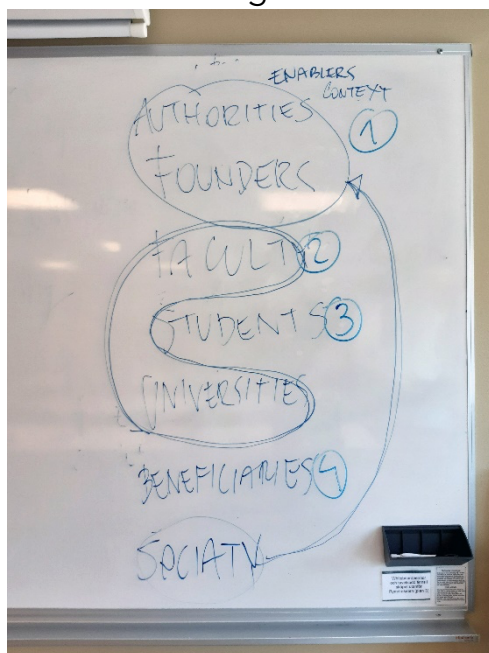 ENABLERS
CONTEXT
AUTHORITIES
FOUNDERS
1
FACULTY 2
STUDENTS 3
UNIVERSITIES
BENEFICIARIES 4
SOCIATY